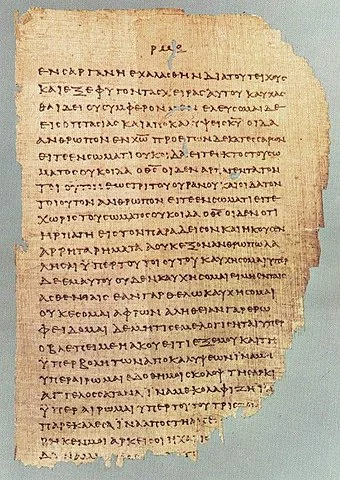 ΕΝ ϹΑΡΓΑΝΗ ΕΧΑΛΑϹΘΗΝ ΔΙΑ ΤΟΥ ΤΕΙΧΟΥϹ
ΚΑΙ ΕΞΕΦΥΓΟΝ ΤΑϹ ΧΕΙΡΑϹ ΑΥΤΟΥ ΚΑΥΧΑϹ
ΘΑΙ ΔΕΙ ΟΥ ϹΥΜΦΕΡΟΝ ΜΕΝ ΕΛΕΥϹΟΜΑΙ ΔΕ
ΕΙϹ ΟΠΤΑϹΙΑϹ ΚΑΙ ΑΠΟΚΑΛΥΨΕΙϹ Κ̅Υ̅ ΟΙΔΑ
ΑΝΘΡΩΠΟΝ ΕΝ Χ̅Ρ̅Ω̅ ΠΡΟ ΕΤΩΝ ΔΕΚΑΤΕϹϹΑΡΩΝ
ΕΙΤΕ ΕΝ ϹΩΜΑΤΙ ΟΥΚ ΟΙΔΑ ΕΙΤΕ ΕΚΤΟϹ ΤΟΥ ϹΩ
ΜΑΤΟϹ ΟΥΚ ΟΙΔΑ Ο Θ̅Ϲ̅ ΟΙΔΕΝ ΑΡΠΑΓΕΝΤΑ ΤΟΝ
ΤΟΙΟΥΤΟΝ ΕΩϹ ΤΡΙΤΟΥ ΟΥΡΑΝΟΥ ΚΑΙ ΟΙΔΑ ΤΟΝ
ΤΟΙΟΥΤΟΝ ΑΝΘΡΩΠΟΝ ΕΙΤΕ ΕΝ ϹΩΜΑΤΙ ΕΙΤΕ
ΧΩΡΙϹ ΤΟΥ ϹΩΜΑΤΟϹ ΟΥΚ ΟΙΔΑ Ο Θ̅Ϲ̅ ΟΙΔΕΝ ΟΤΙ
ΗΡΠΑΓΗ ΕΙϹ ΤΟΝ ΠΑΡΑΔΕΙϹΟΝ ΚΑΙ ΗΚΟΥϹΕΝ
ΑΡΡΗΤΑ ΡΗΜΑΤΑ Α ΟΥΚ ΕΞΟΝ ΑΝΘΡΩΠΩ ΛΑ
ΛΗϹΑΙ ΥΠΕΡ ΤΟΥ ΤΟΙΟΥΤΟΥ ΚΑΥΧΗϹΟΜΑΙ ΥΠΕΡ
ΔΕ ΕΜΑΥΤΟΥ ΟΥΔΕΝ ΚΑΥΧΗϹΟΜΑΙ ΕΙ ΜΗ ΕΝ ΤΑΙϹ
ΑϹΘΕΝΕΙΑΙϹ ΕΑΝ ΓΑΡ ΘΕΛΩ ΚΑΥΧΗϹΟΜΑΙ
ΟΥΚ ΕϹΟΜΑΙ ΑΦΡΩΝ ΑΛΗΘΕΙΑΝ ΓΑΡ ΕΡΩ
ΦΕΙΔΟΜΑΙ ΔΕ ΜΗ ΤΙϹ ΕΜΕ ΛΟΓΙϹΗΤΑΙ ΥΠΕΡ
Ο ΒΛΕΠΕΙ ΜΕ Η ΑΚΟΥΕΙ ΤΙ ΕΞ ΕΜΟΥ ΚΑΙ ΤΗ
ΥΠΕΡΒΟΛΗ ΤΩΝ ΑΠΟΚΑΛΥΨΕΩΝ ΙΝΑ Μ
ΥΠΕΡΑΙΡΩΜΑΙ ΕΔΟΘΗ ΜΟΙ ϹΚΟΛΟΨ ΤΗ ϹΑΡΚΙ
ΑΓΓΕΛΟϹ ϹΑΤΑΝΑ ΙΝΑ ΜΕ ΚΟΛΑΦΙΖΗ
ΥΠΕΡΑΙΡΩΜΑΙ ΥΠΕΡ ΤΟΥΤΟΥ ΤΡΙϹ
ΠΑΡΕΚΑΛΕϹΑ ΙΝΑ ΑΠΟϹΤΗ
ΡΗΚΕΝ ΜΟΙ ΑΡΚΕΙ ϹΟΙ Η ΧΑΡΙϹ